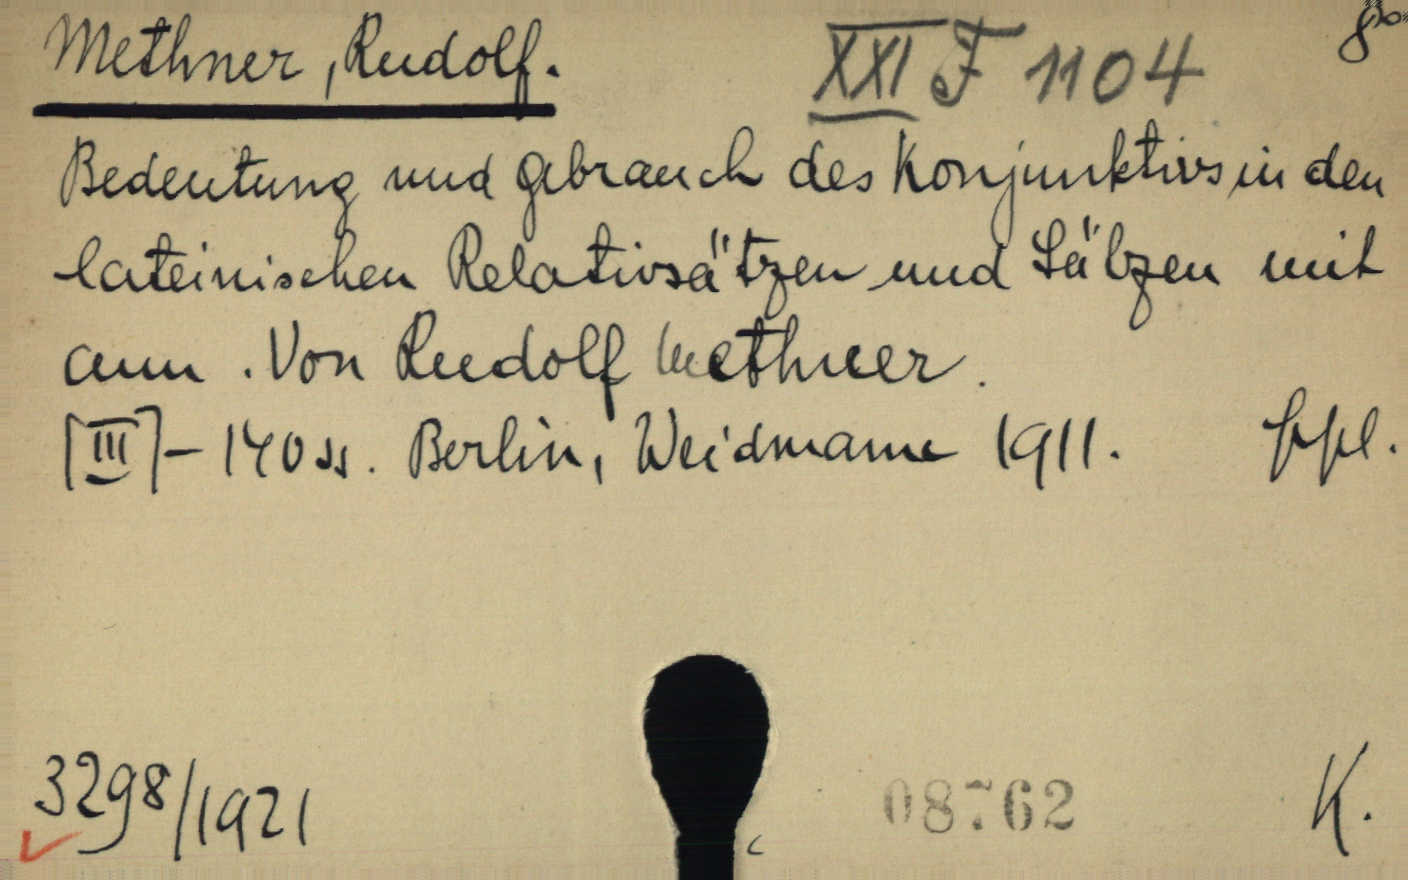 Methner, Rudolf. XXI F 1104 8°
Bedeutung und Gebrauch des Konjunktivs in den
lateinischen Relativsätzen und Sätzen mit
cum. Von Rudolf Methner.
[III] - 140 ss. Berlin, Weidmann 1911. ppl.
3298/1921 08762 K.